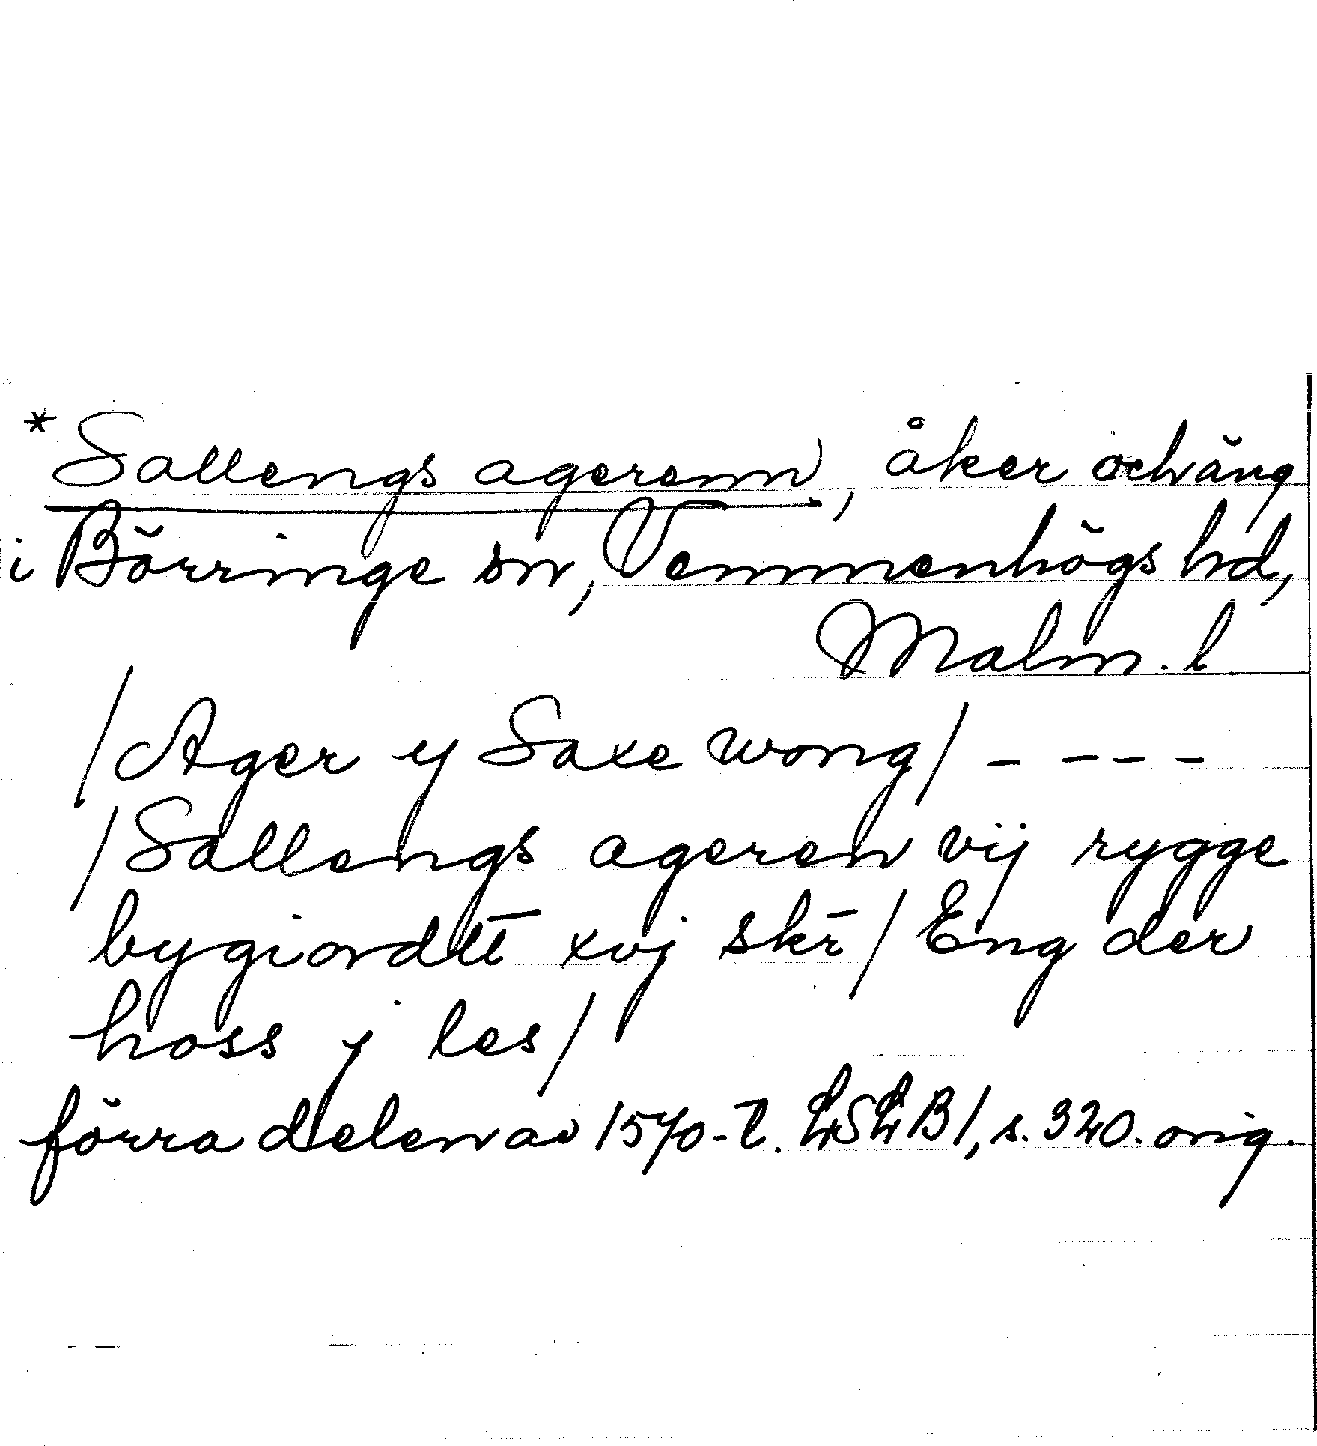 *Sallengs agerenn, åker och äng
i Börringe sn, Vemmenhögs hd,
Malm. l
/Ager y Saxe wong/ - - - -
/Sallengs ageren vij rygge
bygiordtt xvj skr̄/Eng der
hoss j les/
förra delen av 1570-t. LSLB1, s. 320. orig.